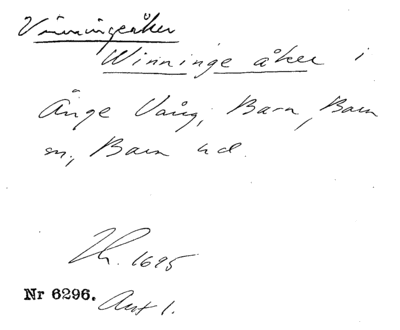 Vinningeåker
Winninge åker i
Änge Vång, Bara, Bara
sn, Bara hd.
Lr. 1695
Nr 6296. Avt 1.